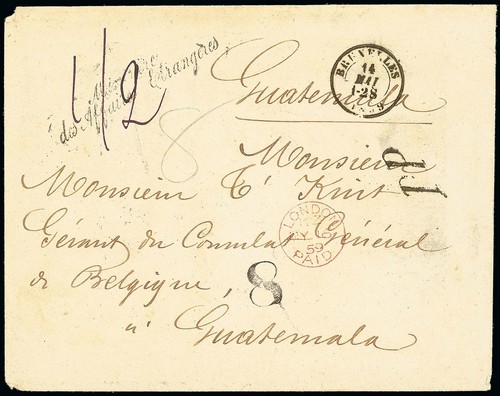 1/2
Ministère
des Affaires Etrangères
BRUXELLES
14
MAI
1-2S
1859
Guatemala
8
Monsieur
PP
Monsieur T' Kint
LONDON
59
PAID
Gérant du Consulat Général
de Belgique,
8
à Guatemala